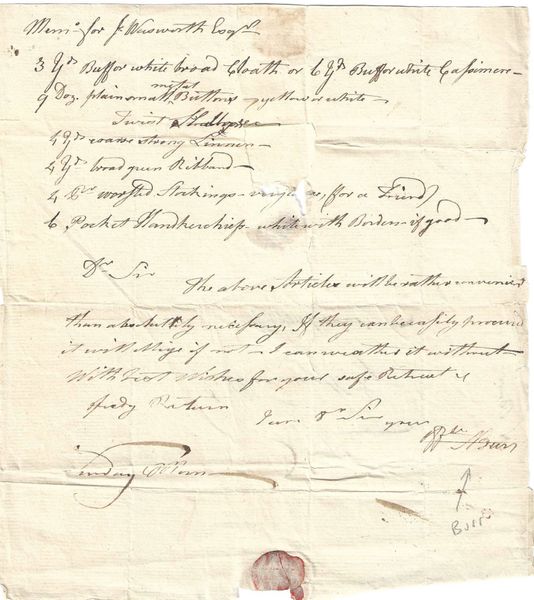 Memo. for J. Wasworth Esqr.
3 Yds Buff or white broad Cloath or 6 Yds Buff or white Cassimere
9 Doz. plain small metal Buttons yellow or white
Twist
4 Yds coarse strong Linnen
4 Yds broad green Ribband
4 Pr worsted Stockings (for a Friend)
6 Pocket Handkerchiefs white with Borders if good
Dr Sir
The above Articles will be rather convenient
than absolutely necessary. If they can be easily procured
it will oblige if not I can weather it without
With best Wishes for your safe Retreat &
speedy Return
I am Dr Sir
yours
A Burr
Sunday
Burr